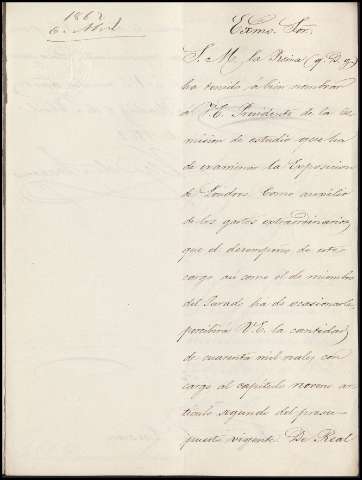 1862
6. Abril
Exmo. Sor.
S. M. la Reina (q. D. g.)
ha tenido á bien nombrar
á V. E. Presidente de la Co-
mision de estudio que ha
de examinar la Exposicion
de Londres. Como auxilio
de los gastos extraordinarios
que el desempeño de este
cargo asi como el de miembro
del Jurado ha de ocasionarle,
percibirá V. E. la cantidad
de cuarenta mil reales con
cargo al capitulo noveno ar-
ticulo segundo del presu-
puesto vigente. De Real